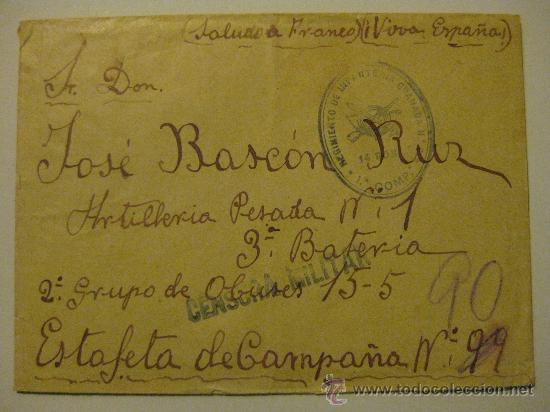 (Saludo a Franco) (¡Viva España!)
Sr. Don.
José Bascón Ruz
Artilleria Pesada Nº 1
3ª Bateria
2º Grupo de Obuses 15-5
Estafeta de Campaña Nº
90
REGIMIENTO DE INFANTERIA GRANADA N.
1ª COMP.
CENSURA MILITAR
© todocoleccion
www.todocoleccion.net